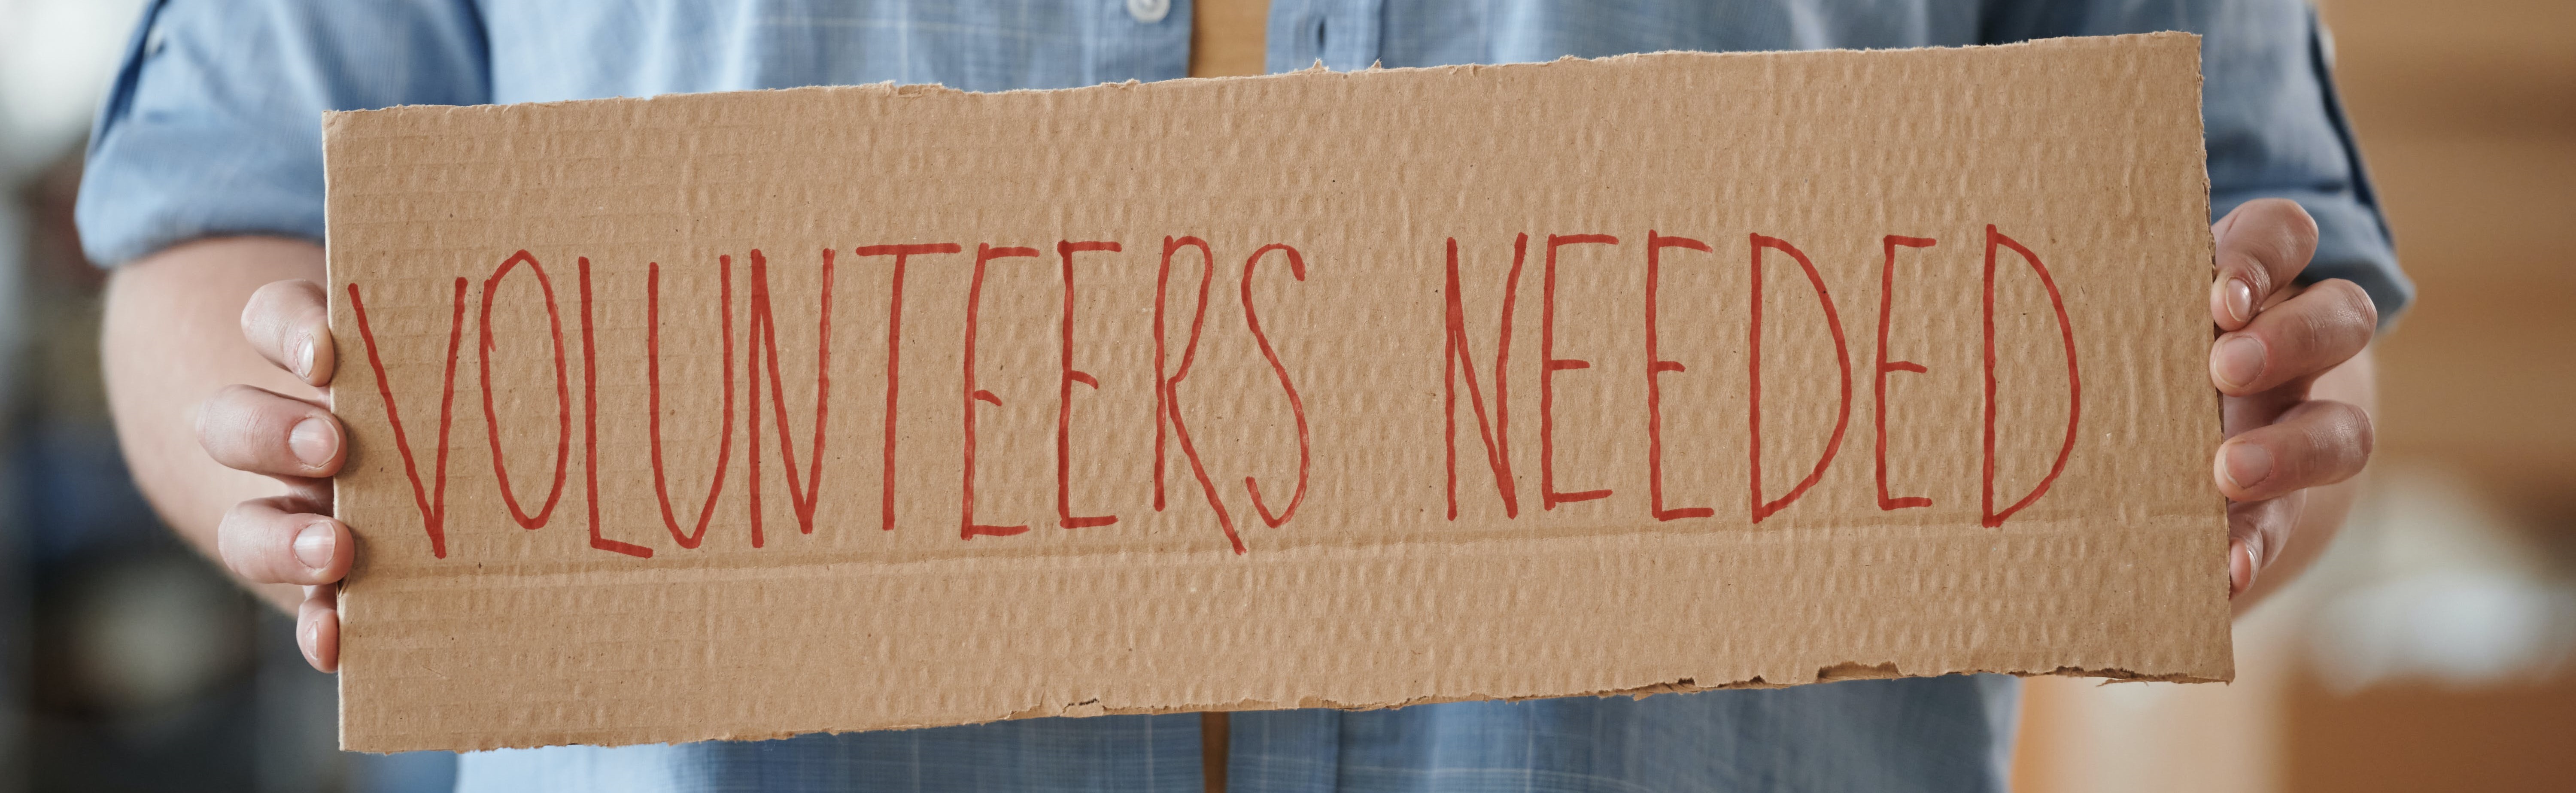 VOLUNTEERS NEEDED